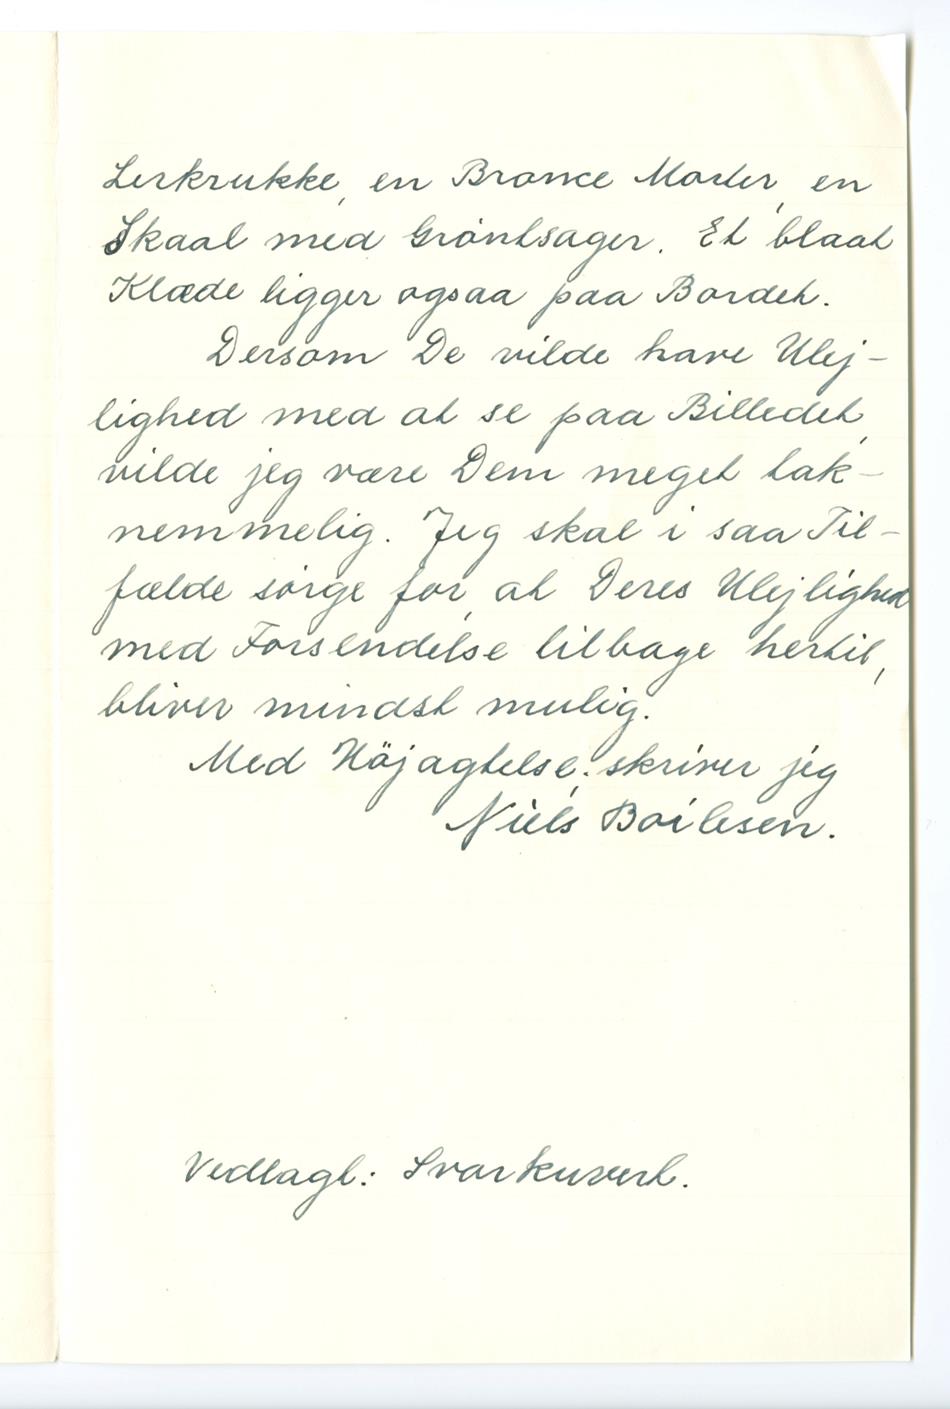 Lerkrukke, en Bronce Morter, en
Skaal med Grøntsager. Et blaat
Klæde ligger ogsaa paa Bordet.
Dersom De vilde have Ulej-
lighed med at se paa Billedet,
vilde jeg være Dem meget tak-
nemmelig. Jeg skal i saa Til-
fælde sørge for, at Deres Ulejlighed
med Forsendelse tilbage hertil,
bliver mindst mulig.
Med Höjagtelse, skriver jeg
Niels Boilesen.
Vedlagt: Svarkuvert.